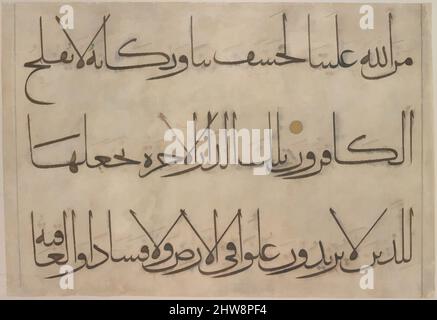 من الله علينا لخسف بنا ويكانه لا يفلح
الكافرون تلك الدار الاخره نجعلها
للذين لا يريدون علوا في الارض ولا فسادا والعاقبه
alamy
Image ID: 2HW8PF4
www.alamy.com